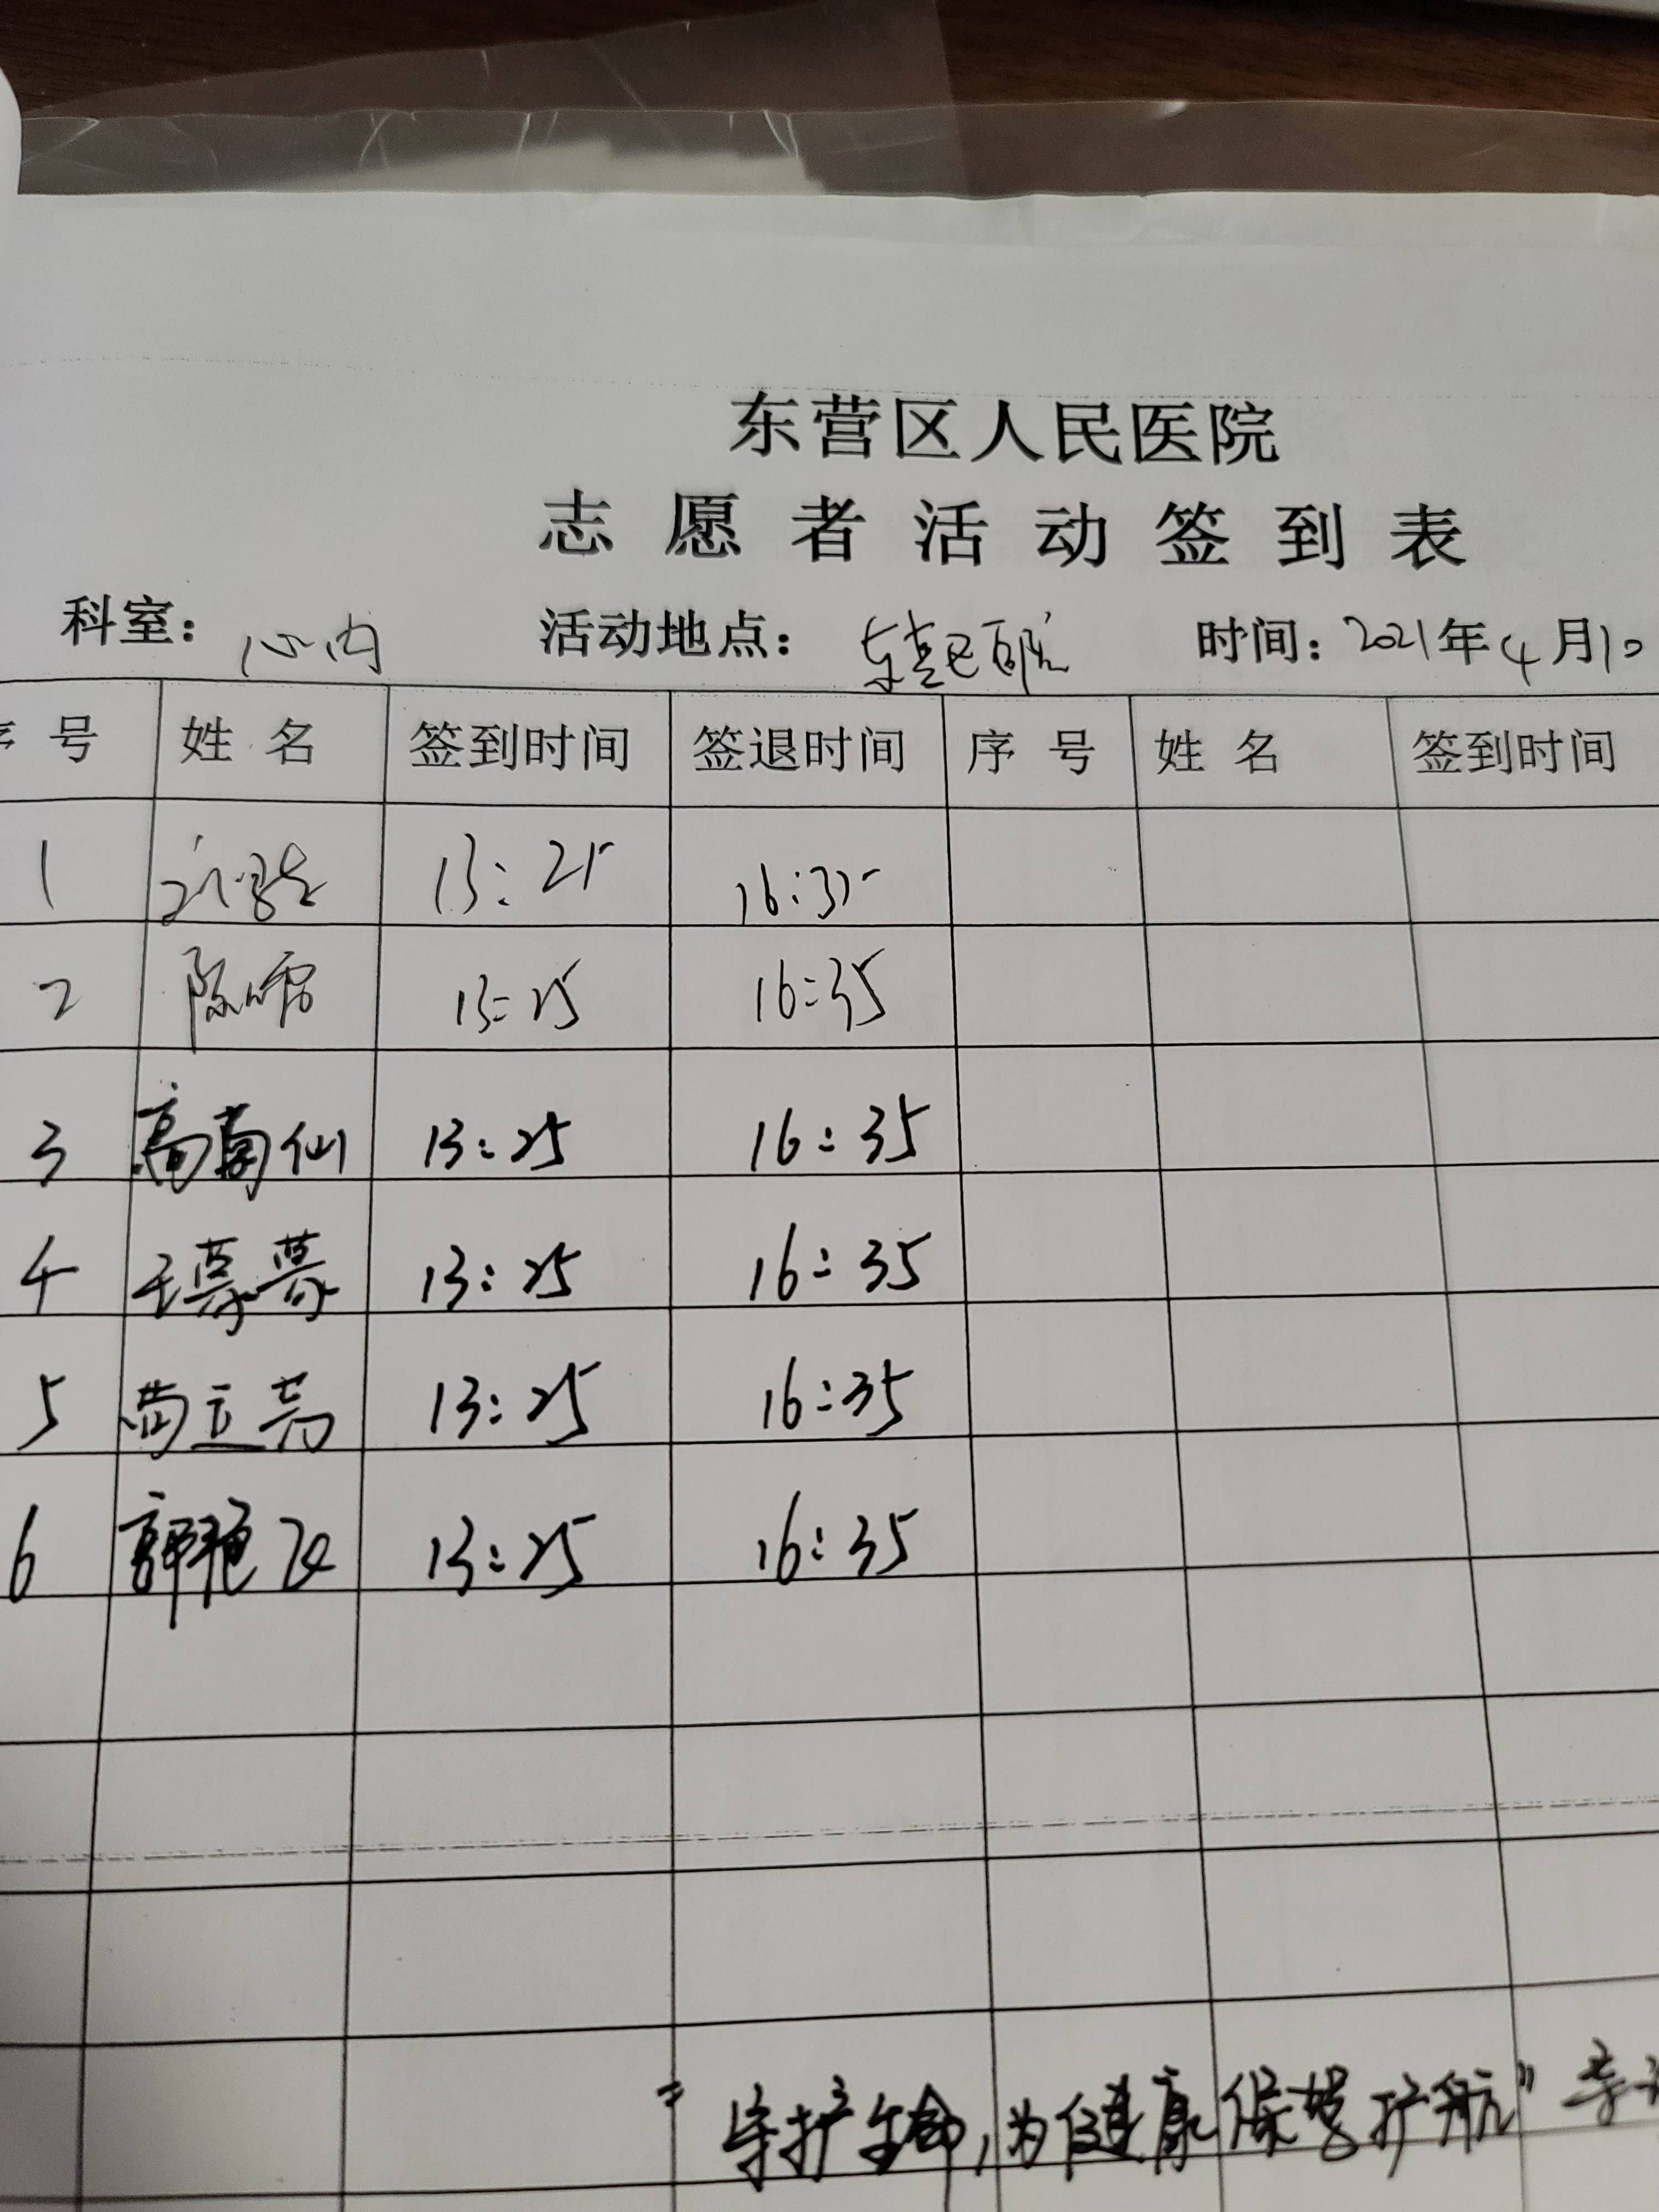 东营区人民医院
志愿者活动签到表
科室：心内 活动地点：东营区人民医院 时间：2021年4月10
序号 姓名 签到时间 签退时间 序号 姓名 签到时间
1 13:25 16:35
2 陈 13:25 16:35
3 高菊仙 13:25 16:35
4 王慕慕 13:25 16:35
5 苗立亮 13:25 16:35
6 郭艳 13:25 16:35
"守护生命,为健康保驾护航"